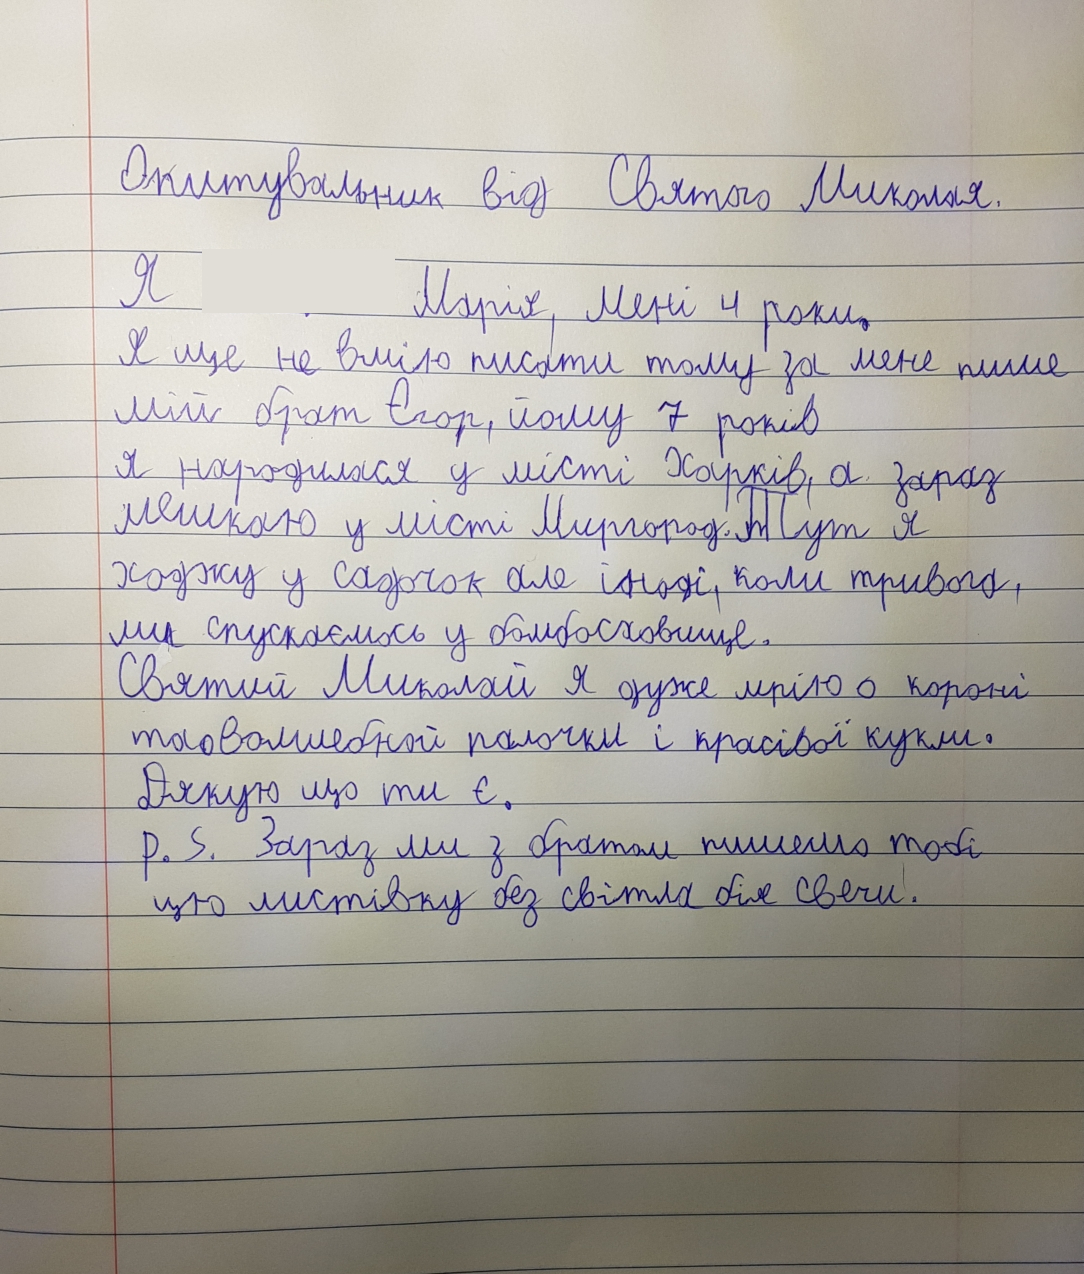 Опитувальник від Святого Миколая.
Я Марія, мені 4 роки.
Я ще не вмію писати тому за мене пише
мій брат Єгор, йому 7 років
я народилася у місті Харків, а зараз
мешкаю у місті Миргород. Тут я
ходжу у садочок але іноді, коли тривога,
ми спускаємось у бомбосховище.
Святий Миколай я дуже мрію о короні
та волшебной палочки і красівої кукли.
Дякую що ти є.
P.S. Зараз ми з братом пишемо тобі
цю листівку без світла біля свечи.